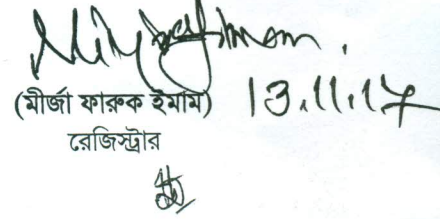 (মীর্জা ফারুক ইমাম) 13.11.17
রেজিস্ট্রার